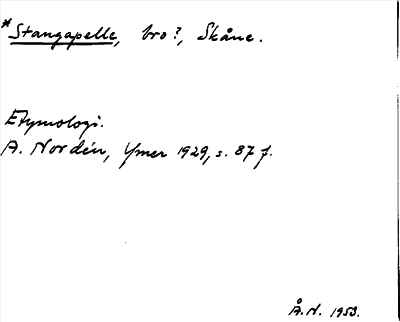 *Stangapelle, bro?, Skåne.
Etymologi.
A. Nordén, Ymer 1929, s. 87 f.
Å.N. 1953.